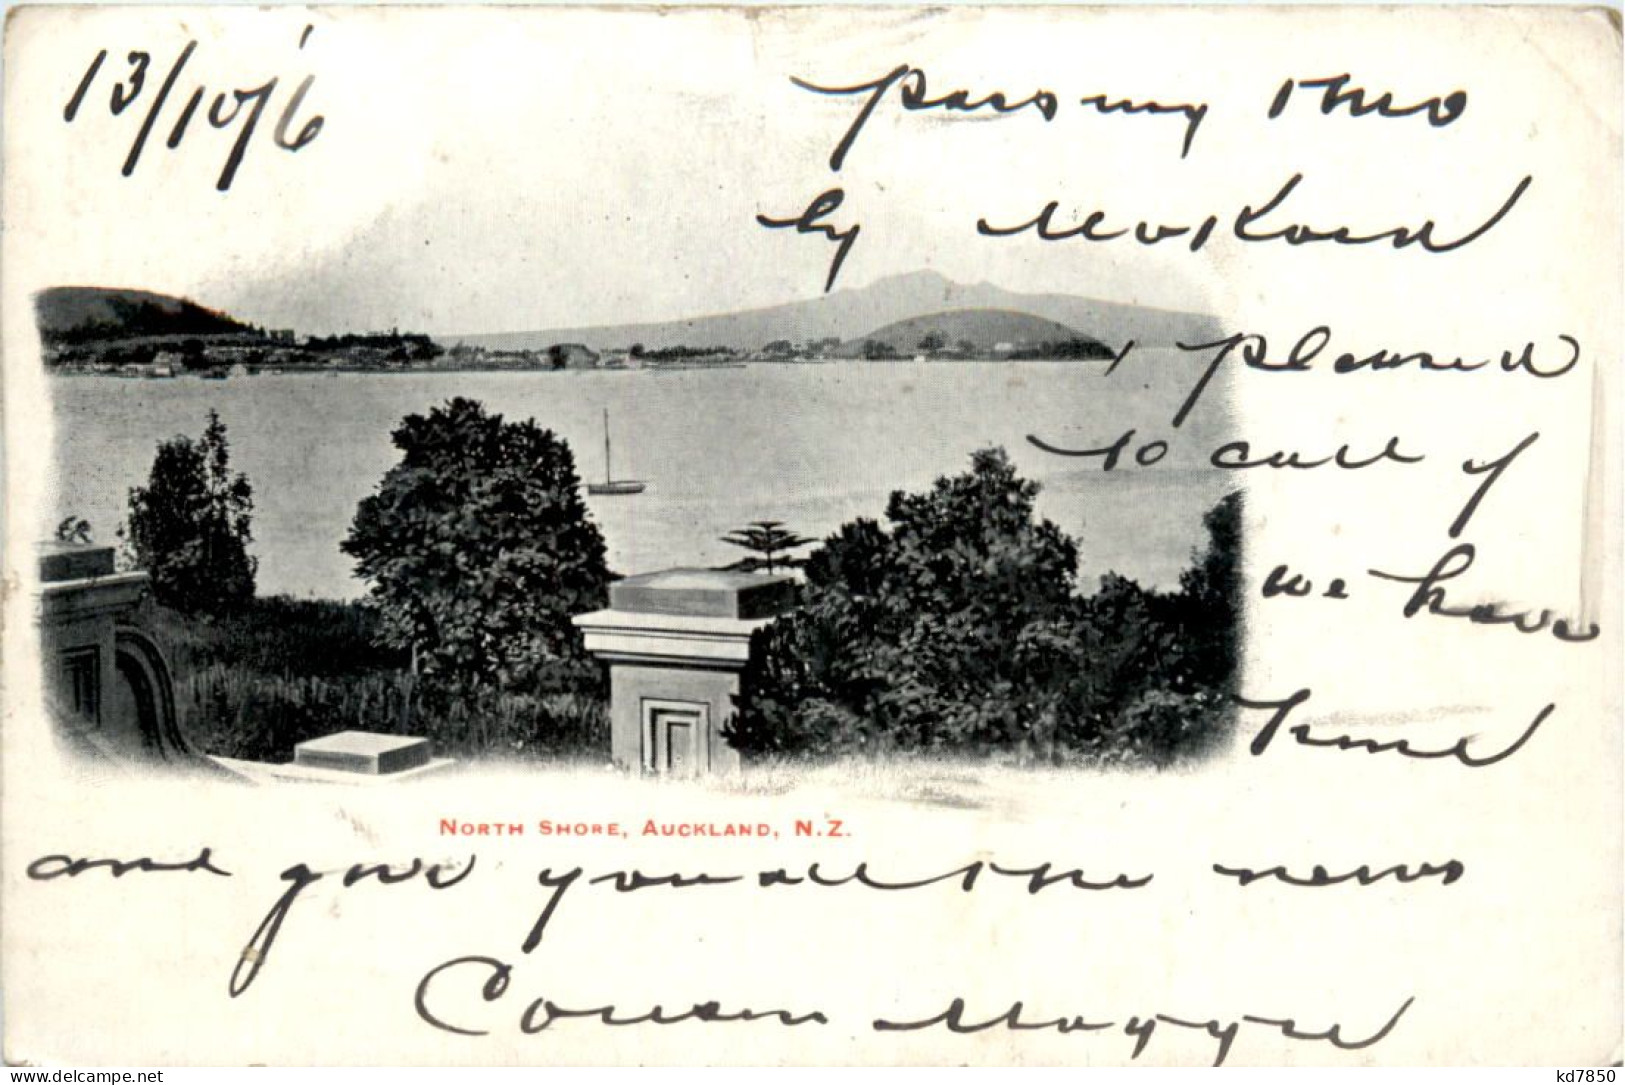 13/10/'6
passing thro
by
pleased
to call if
we have
time
NORTH SHORE, AUCKLAND, N.Z.
and give you all the news
Cousin Maggie
www.delcampe.net
kd7850